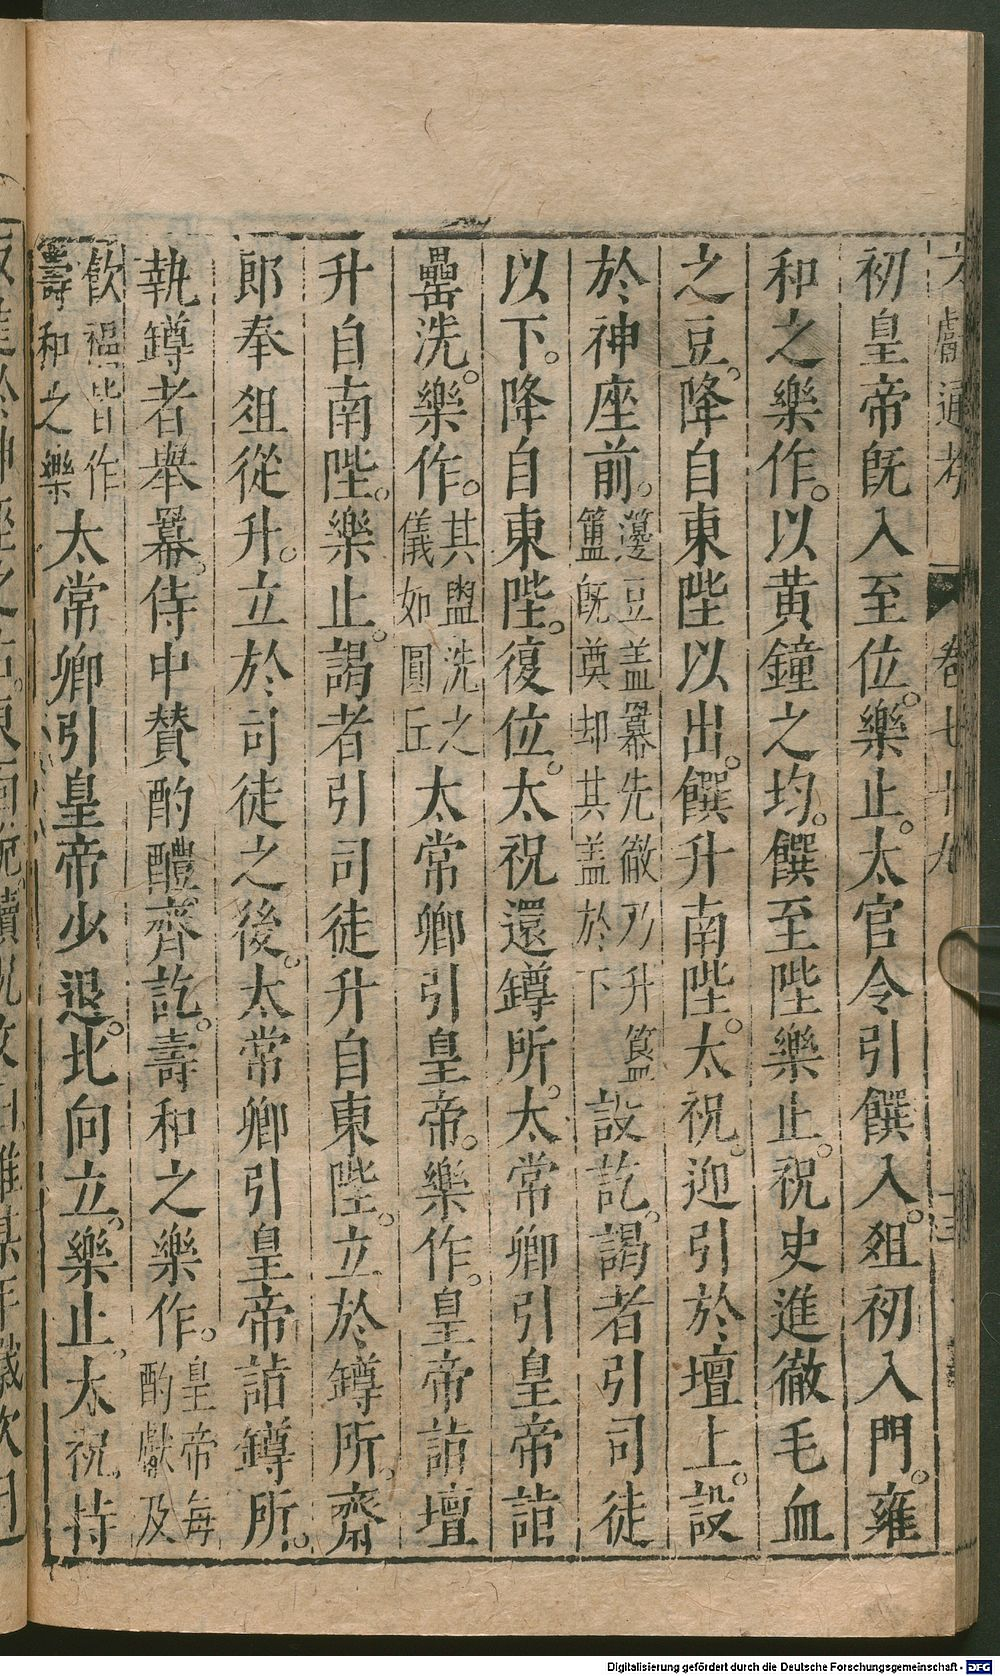 文獻通考 卷七十九 十三
初皇帝既入至位。樂止。太官令引饌入。俎初入門。雍
和之樂作。以黃鐘之均。饌至陛樂止。祝史進徹毛血
之豆。降自東陛以出。饌升南陛。太祝。迎引於壇上。設
於神座前。籩豆盖冪先徹乃升簋簠既奠却其盖於下設訖。謁者引司徒
以下。降自東陛。復位。太祝還罇所。太常卿引皇帝詣
罍洗。樂作。其盥洗之儀如圓丘太常卿引皇帝。樂作。皇帝詣壇
升自南陛。樂止。謁者引司徒升自東陛。立於罇所。齋
郎奉俎從升。立於司徒之後。太常卿引皇帝詣罇所。
執罇者舉冪。侍中贊酌醴齊訖。壽和之樂作。皇帝每酌獻及
飲福皆作壽和之樂太常卿引皇帝少退。北向立。樂止。太祝。持
Digitalisierung gefördert durch die Deutsche Forschungsgemeinschaft - DFG